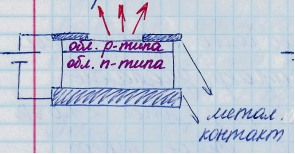 обл. р-типа
обл. п-типа
метал.
контакт